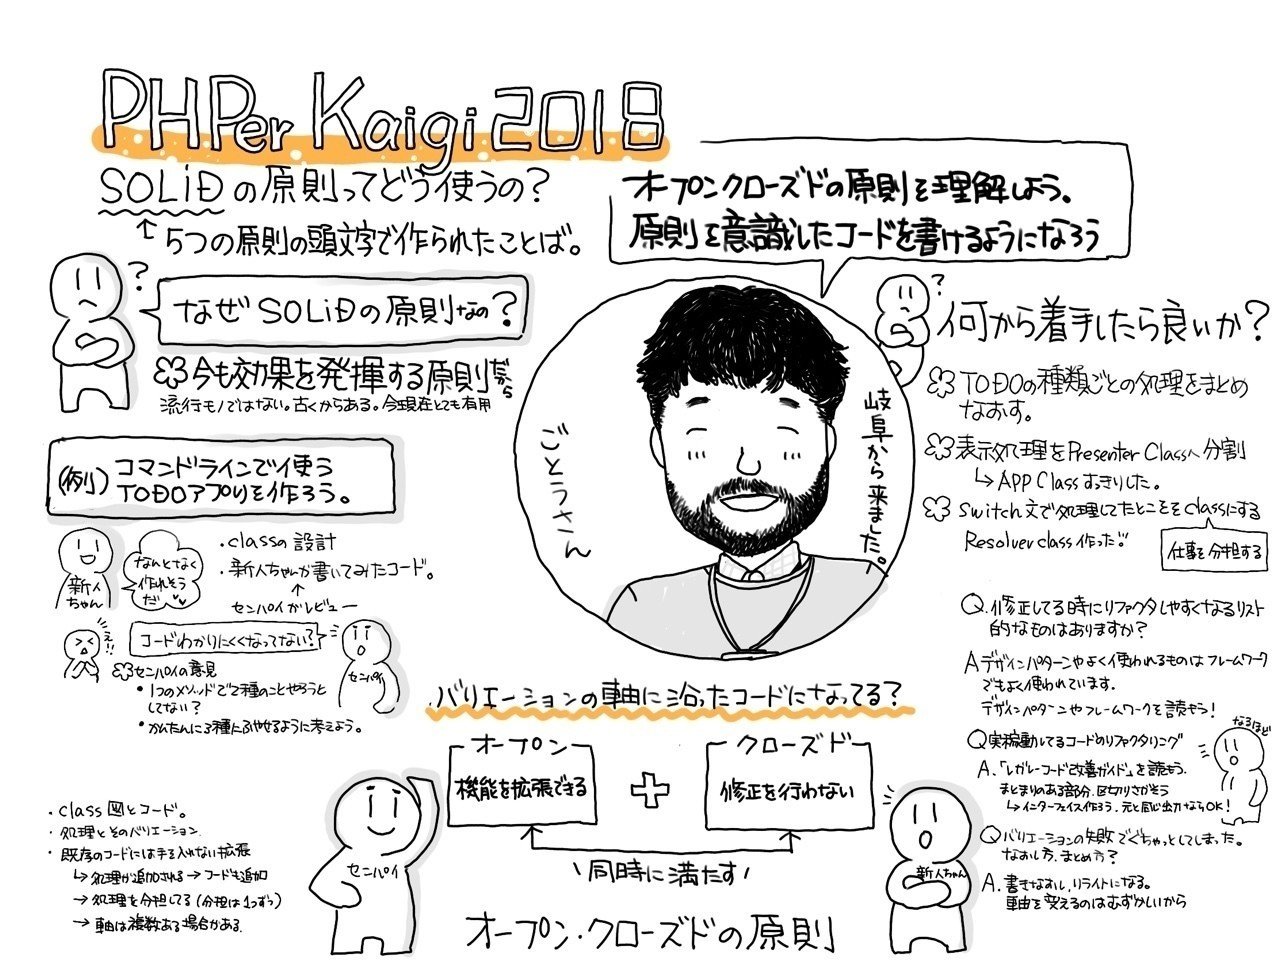 PHPer Kaigi 2018
SOLiDの原則ってどう使うの?
↑5つの原則の頭文字で作られたことば。
オープンクローズドの原則を理解しよう。
原則を意識したコードを書けるようになろう
?
なぜSOLiDの原則なの?
今も効果を発揮する原則だから
流行モノではない。古くからある。今現在とても有用
(例) コマンドラインで使う
TODOアプリを作ろう。
新人
ちゃん
なんとなく
作れそう
だ
・classの設計
・新人ちゃんが書いてみたコード。
↑
センパイがレビュー
コードわかりにくくなってない?
センパイ
センパイの意見
・1つのメソッドで2種のことやろうと
してない?
・かんたんに3種にふやせるように考えよう。
・class図とコード。
・処理とそのバリエーション
・既存のコードには手を入れない拡張
↳処理が追加される→コードも追加
→処理を分担してる(分担は1つずつ)
→軸は複数ある場合がある
ごとうさん
岐阜から来ました。
バリエーションの軸に沿ったコードになってる?
オープン
機能を拡張できる
+
クローズド
修正を行わない
同時に満たす
センパイ
新人ちゃん
オープン・クローズドの原則
?
何から着手したら良いか?
TODOの種類ごとの処理をまとめ
なおす。
表示処理をPresenter Classへ分割
↳APP Classすっきりした。
Switch文で処理してたとこをclassにする
Resolver class作った!!
仕事を分担する
Q.修正してる時にリファクタしやすくなるリスト
的なものはありますか?
Aデザインパターンやよく使われるものはフレームワーク
でもよく使われています。
デザインパターンやフレームワークを読もう!
Q実稼動してるコードのリファクタリング
なるほど
A.「レガシーコード改善ガイド」を読もう。
まとまりのある部分、区切りさがそう
↳インターフェイス作ろう。元と同じ出力ならOK!
Qバリエーションの失敗でぐちゃっとしてしまった。
なおし方、まとめ方?
A.書きなおし、リライトになる。
軸を変えるのはむずかしいから